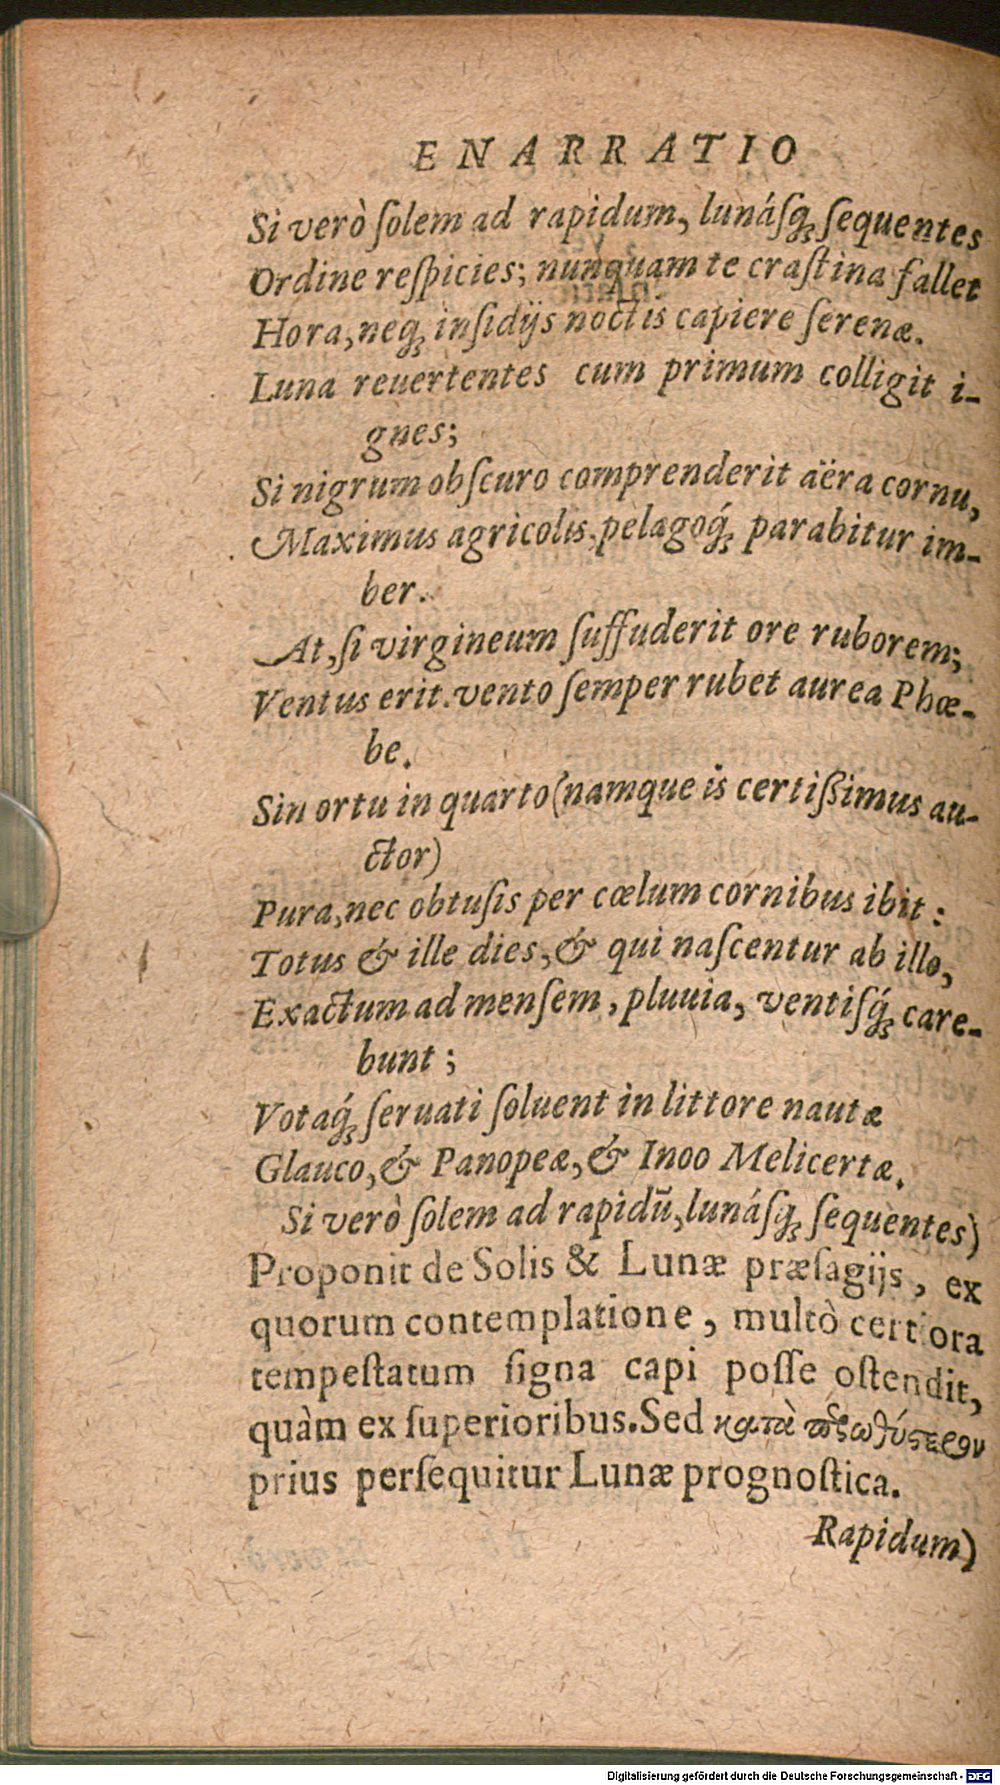 ENARRATIO
Si verò ſolem ad rapidum, lunáſq́; ſequentes
Ordine reſpicies; nunquam te craſtina fallet
Hora, neq; inſidijs noctis capiere ſerenæ.
Luna reuertentes cum primum colligit i-
gnes;
Si nigrum obſcuro comprenderit aëra cornu,
Maximus agricolis. pelagoq́; parabitur im-
ber.
At, ſi virgineum ſuffuderit ore ruborem;
Ventus erit. vento ſemper rubet aurea Phœ-
be.
Sin ortu in quarto (namque is certißimus au-
ctor)
Pura, nec obtuſis per cœlum cornibus ibit:
Totus & ille dies, & qui naſcentur ab illo,
Exactum ad menſem, pluuia, ventiſq́; care-
bunt;
Votaq́; ſeruati ſoluent in littore nautæ
Glauco, & Panopeæ, & Inoo Melicertæ.
Si verò ſolem ad rapidū, lunáſq; ſequentes)
Proponit de Solis & Lunæ præſagijs, ex
quorum contemplatione, multò certiora
tempeſtatum ſigna capi poſſe oſtendit,
quàm ex ſuperioribus. Sed κατὰ
prius perſequitur Lunæ prognoſtica.
Rapidum)
Digitalisierung gefördert durch die Deutsche Forschungsgemeinschaft - DFG